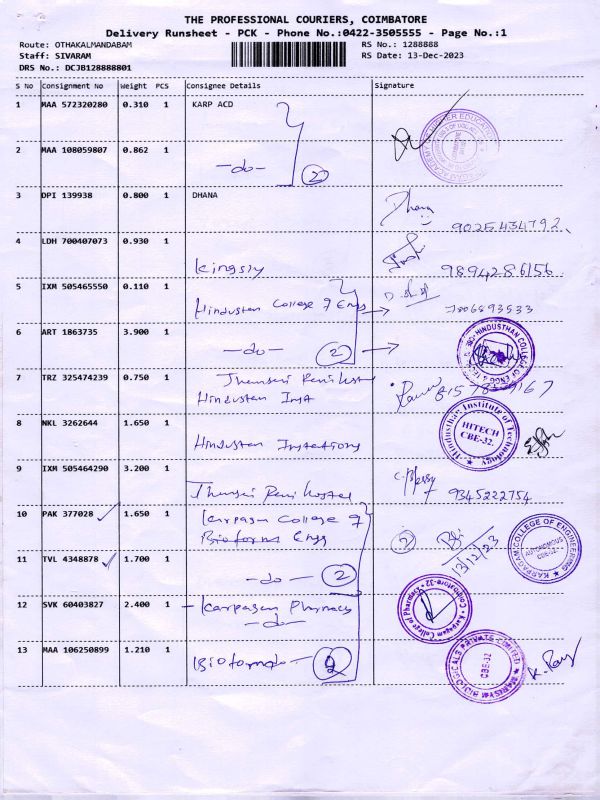 THE PROFESSIONAL COURIERS, COIMBATORE
Delivery Runsheet - PCK - Phone No.:0422-3505555 - Page No.:1
Route: OTHAKALMANDABAM
RS No.: 1288888
Staff: SIVARAM
RS Date: 13-Dec-2023
DRS No.: DCJB128888801
S No Consignment No Weight PCS Consignee Details Signature
1 MAA 572320280 0.310 1 KARP ACD
2 MAA 108059807 0.862 1 -do- 2
3 DPI 139938 0.800 1 DHANA Dhana 9025434792
4 LDH 700407073 0.930 1 Kingsly 9894286156
5 IXM 505465550 0.110 1 Hindustan College of Engg 7806893533
6 ART 1863735 3.900 1 -do- 2
HINDUSTHAN COLLEGE OF ENGG & TECH
7 TRZ 325474239 0.750 1
Hindustan Inst
8 NKL 3262644 1.650 1 Hindustan
Hindusthan Institute of Technology
HITECH
CBE-32.
9 IXM 505464290 3.200 1 9345222754
10 PAK 377028 1.650 1 Karpagam College of Engg 2
13/12/23
KARPAGAM COLLEGE OF ENGINEERING
AUTONOMOUS
11 TVL 4348878 1.700 1 -do- 2
12 SVK 60403827 2.400 1 - Karpagam Pharmacy
-do-
Karpagam College of Pharmacy • Coimbatore-32
13 MAA 106250899 1.210 1 2
BIOLOGICALS PRIVATE LIMITED
CBE-32